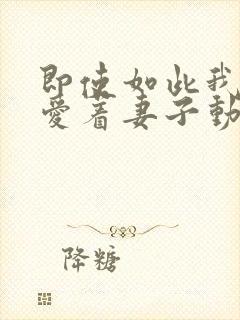 即使如此我
爱着妻子動
降糖